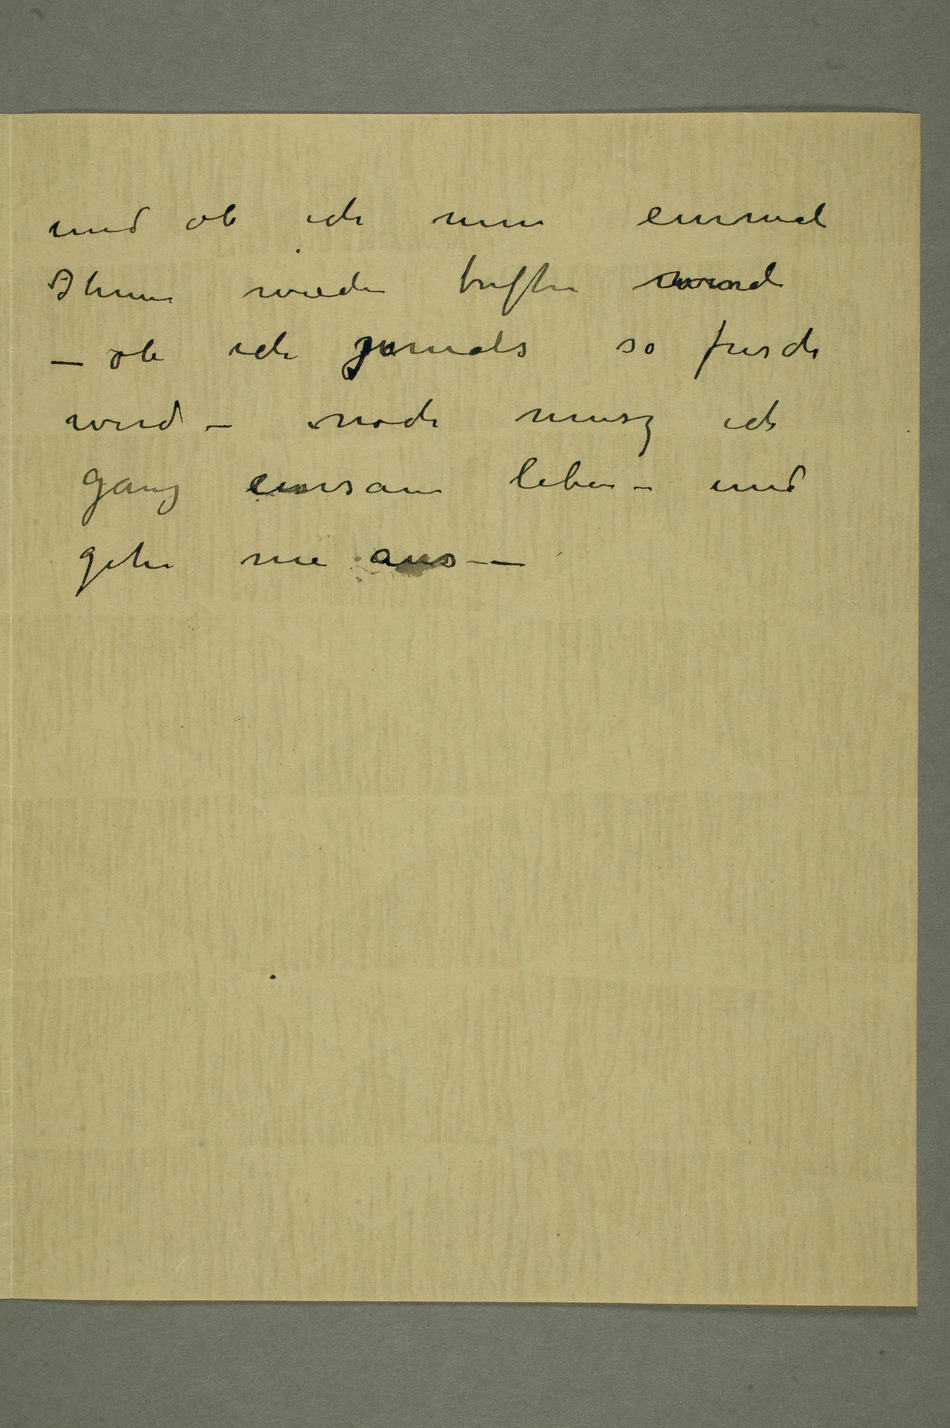 und ob ich nun einmal
Ihnen wieder treffen werde
– ob ich jemals so frisch
werd – noch musz ich
ganz einsam leben – und
gehe nie aus –